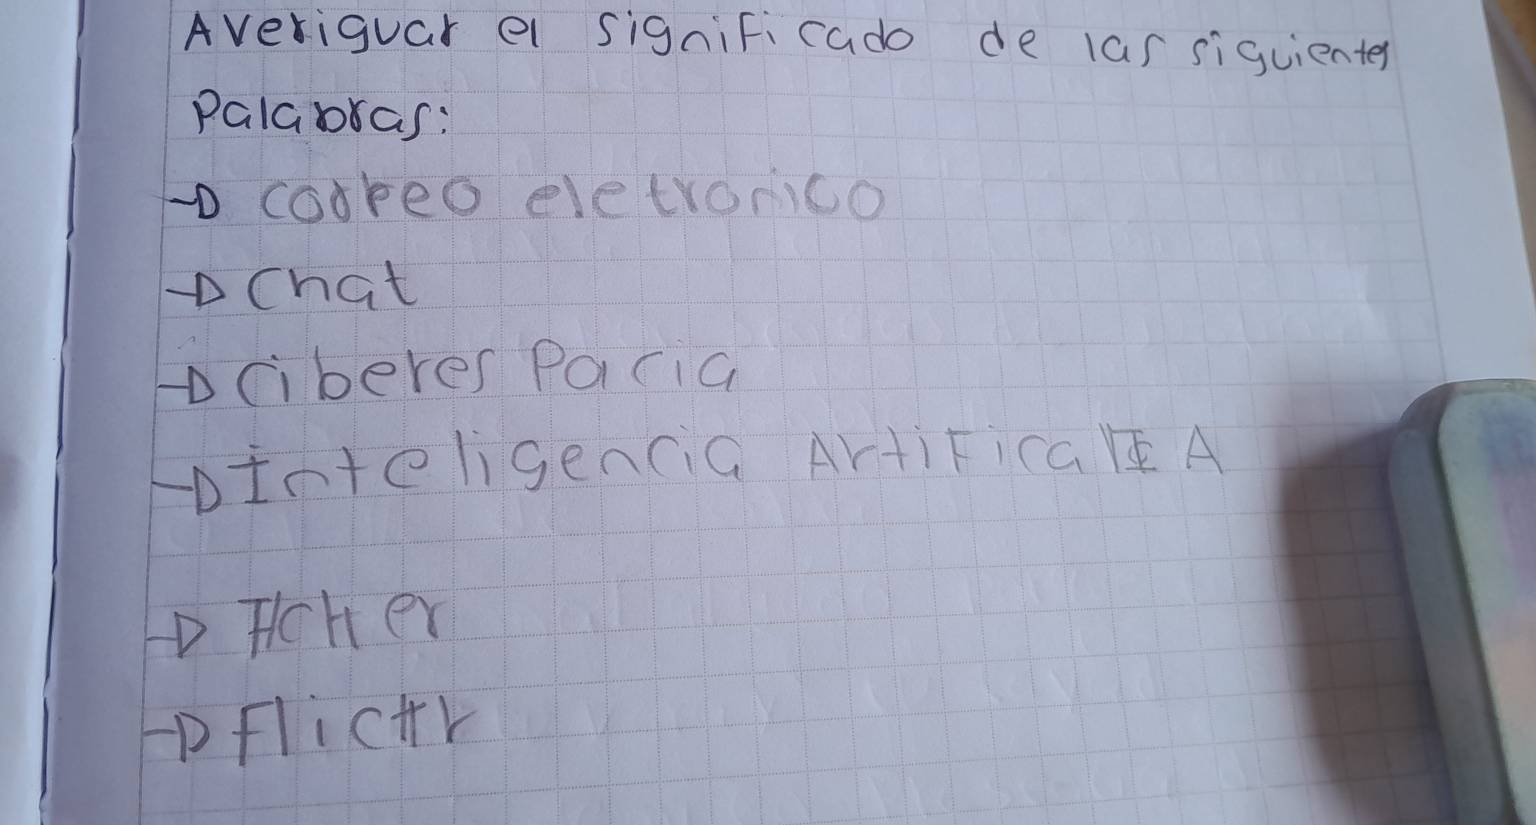 Averiguar el significado de las siguientes
Palabras:
→ correo eletronico
→ Chat
→ Ciberes Pacia
→ Inteligencia Artifical IA
→ Hcker
→ Flickr